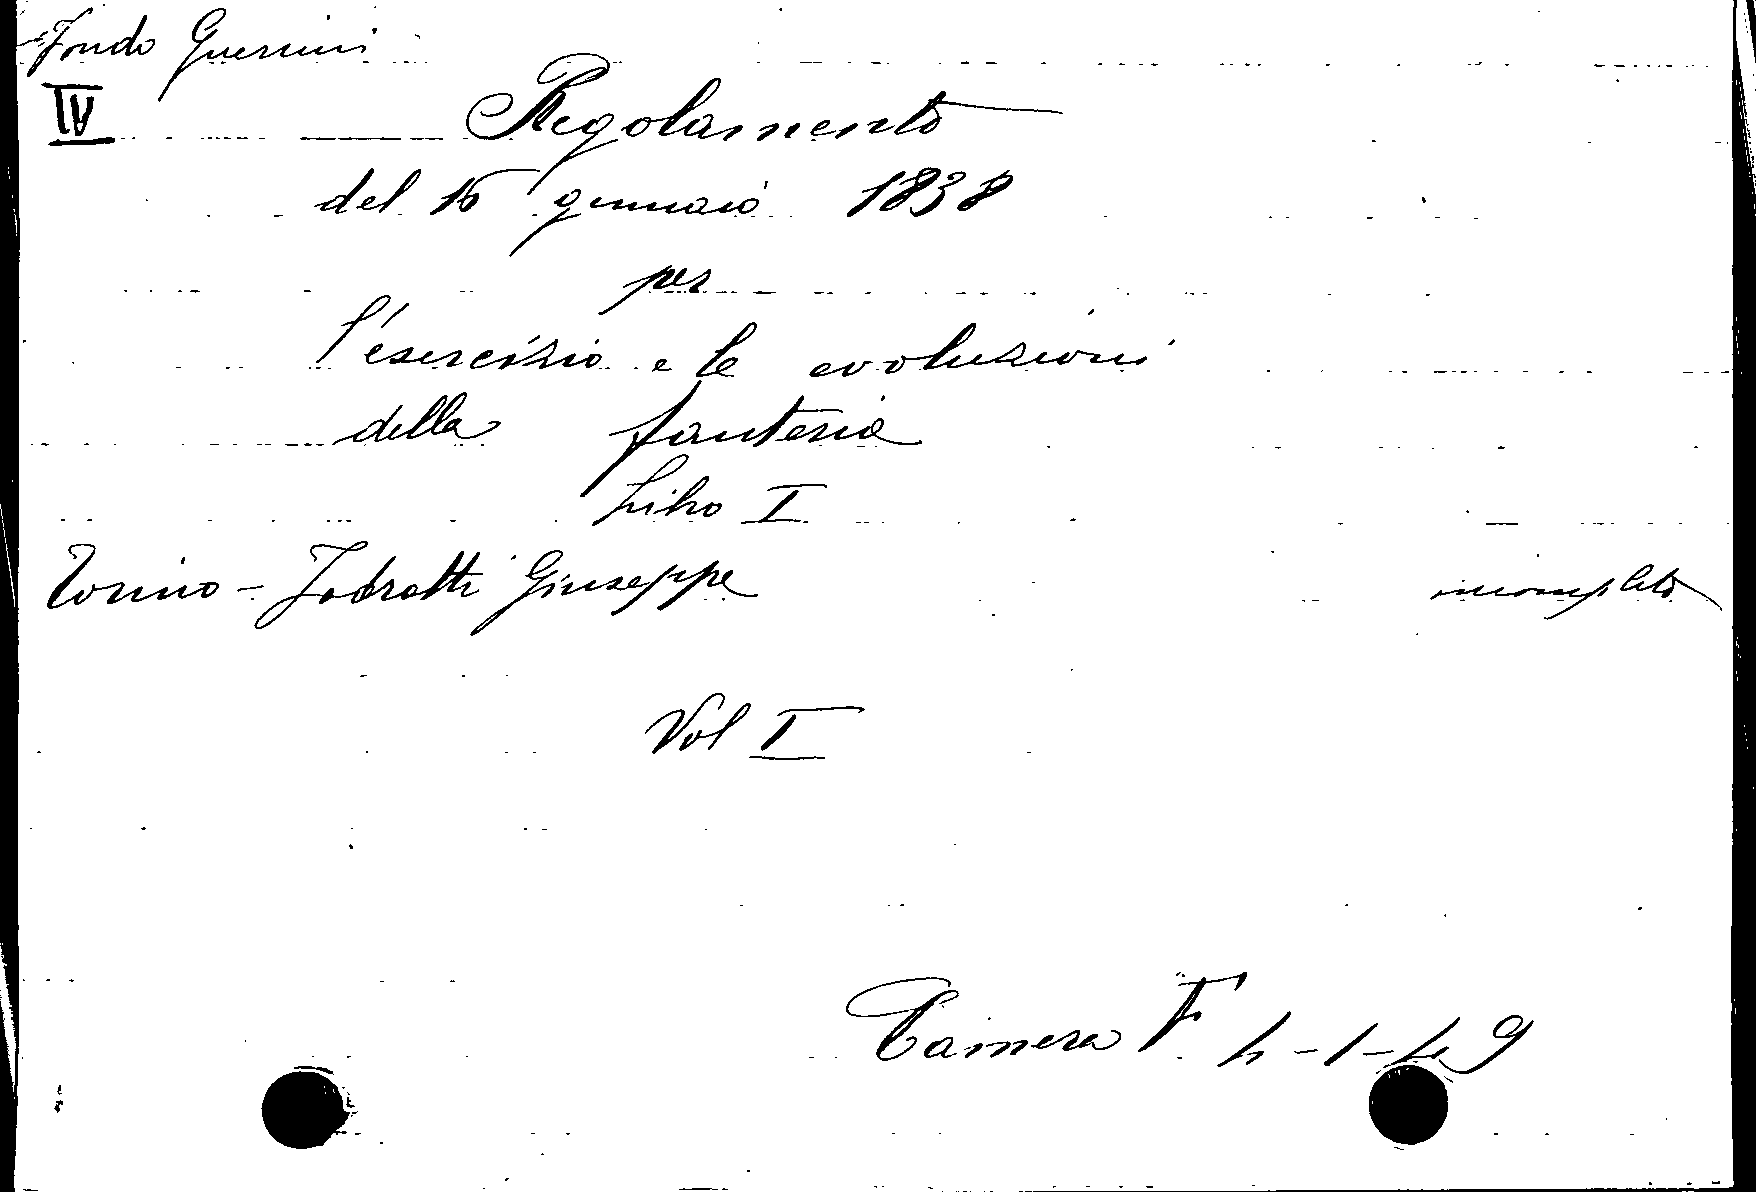 Fondo Guerrini
IV
Regolamento
del 16 gennaio 1838
per
l'esercizio e le evoluzioni
della fanteria
Libro I
Torino - Fodratti Giuseppe incompleto
Vol I
Camera F 4-1-49